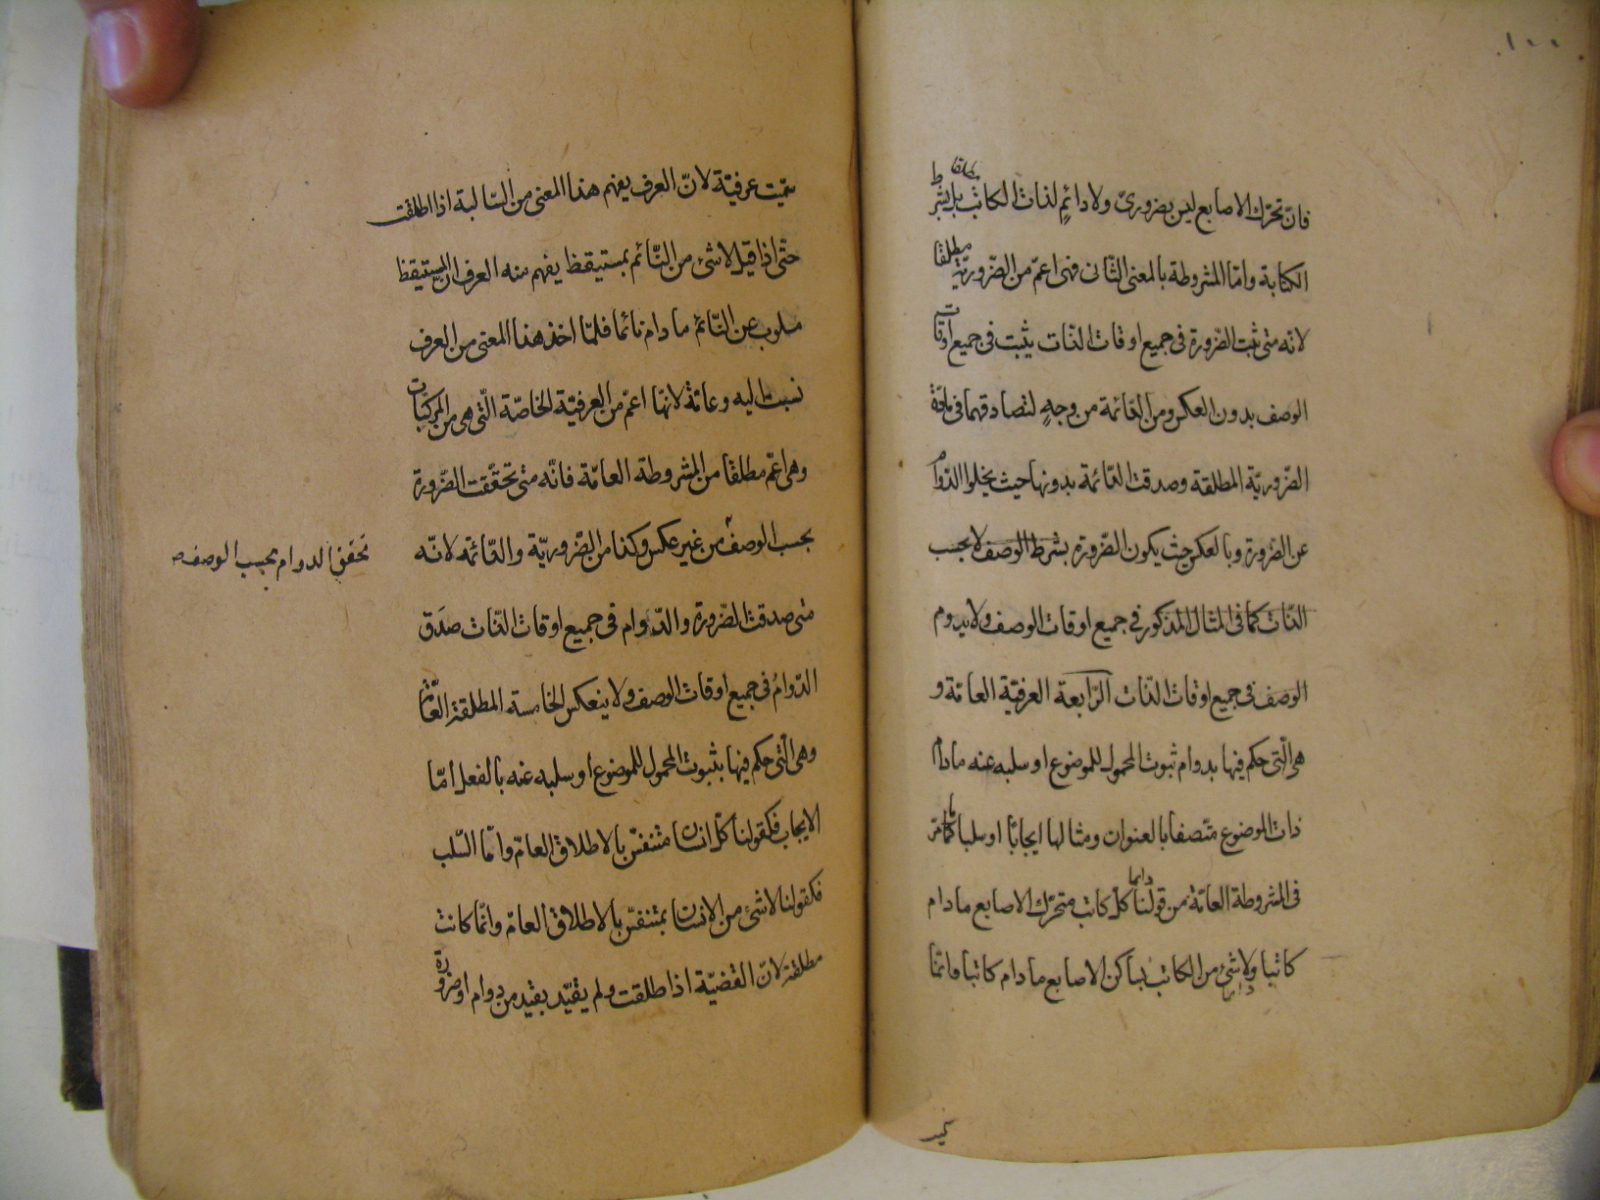 ١٠٠
فان تحرّك الاصابع ليس بضروريّ ولا دائمٍ لذات الكاتب مطلقا بل بشرط
الكتابة وامّا المشروطة بالمعنى الثانى فهى اعمّ من الضّروريّة مطلقا
لانّه متى ثبت الضّرورة فى جميع اوقات الذّات يثبت فى جميع اوقات
الوصف بدون العكس ومن الدّائمة من وجهٍ لتصادقهما فى مادّة
الضّروريّة المطلقة وصدقت الدّائمة بدونها حيث يخلوا الدّوام
عن الضّرورة وبالعكس حيث يكون الضّرورة بشرط الوصف لا بحسب
الذّات كما فى المثال المذكور فى جميع اوقات الوصف ولا يدوم
الوصف فى جميع اوقات الذّات الرّابعة العرفيّة العامّة و
هى الّتى حكم فيها بدوام ثبوت المحمول للموضوع او سلبه عنه مادام
ذات الموضوع متّصفا بالعنوان ومثالها ايجابًا او سلبا كما مرّ
فى المشروطة العامّة من قولنا دايما كلّ كاتب متحرّك الاصابع مادام
كاتبا ولا شئ من الكاتب بساكن الاصابع مادام كاتبا وانّما
سمّيت عرفيّة لانّ العرف يفهم هذا المعنى من السّالبة اذا اطلقت
حتّى اذا قيل لا شئ من النّائم بمستيقظ يفهم منه العرف ان المستيقظ
مسلوب عن النّائم مادام نائما فلمّا اخذ هذا المعنى من العرف
نسبت اليه وعامّة لانّها اعمّ من العرفيّة الخاصّة الّتى هى من المركبات
وهى اعمّ مطلقا من المشروطة العامّة فانّه متى تحقّقت الضّرورة
بحسب الوصف من غير عكس وكذا من الضّروريّة والدّائمة لانّه
تحقق الدوام بحسب الوصف
متى صدقت الضّرورة والدّوام فى جميع اوقات الذّات صَدَق
الدّوامُ فى جميع اوقات الوصف ولا ينعكس الخامسة المطلقة العامّة
وهى الّتى حكم فيها بثبوت المحمول للموضوع او سلبه عنه بالفعل امّا
الايجاب فكقولنا كلّ انسان متنفّس بالاطلاق العامّ وامّا السّلب
فكقولنا لا شئ من الانسان بمتنفّس بالاطلاق العامّ وانّما كانت
مطلقة لانّ القضيّة اذا طلقت ولم يقيّد بقيد من دوام او ضرورة